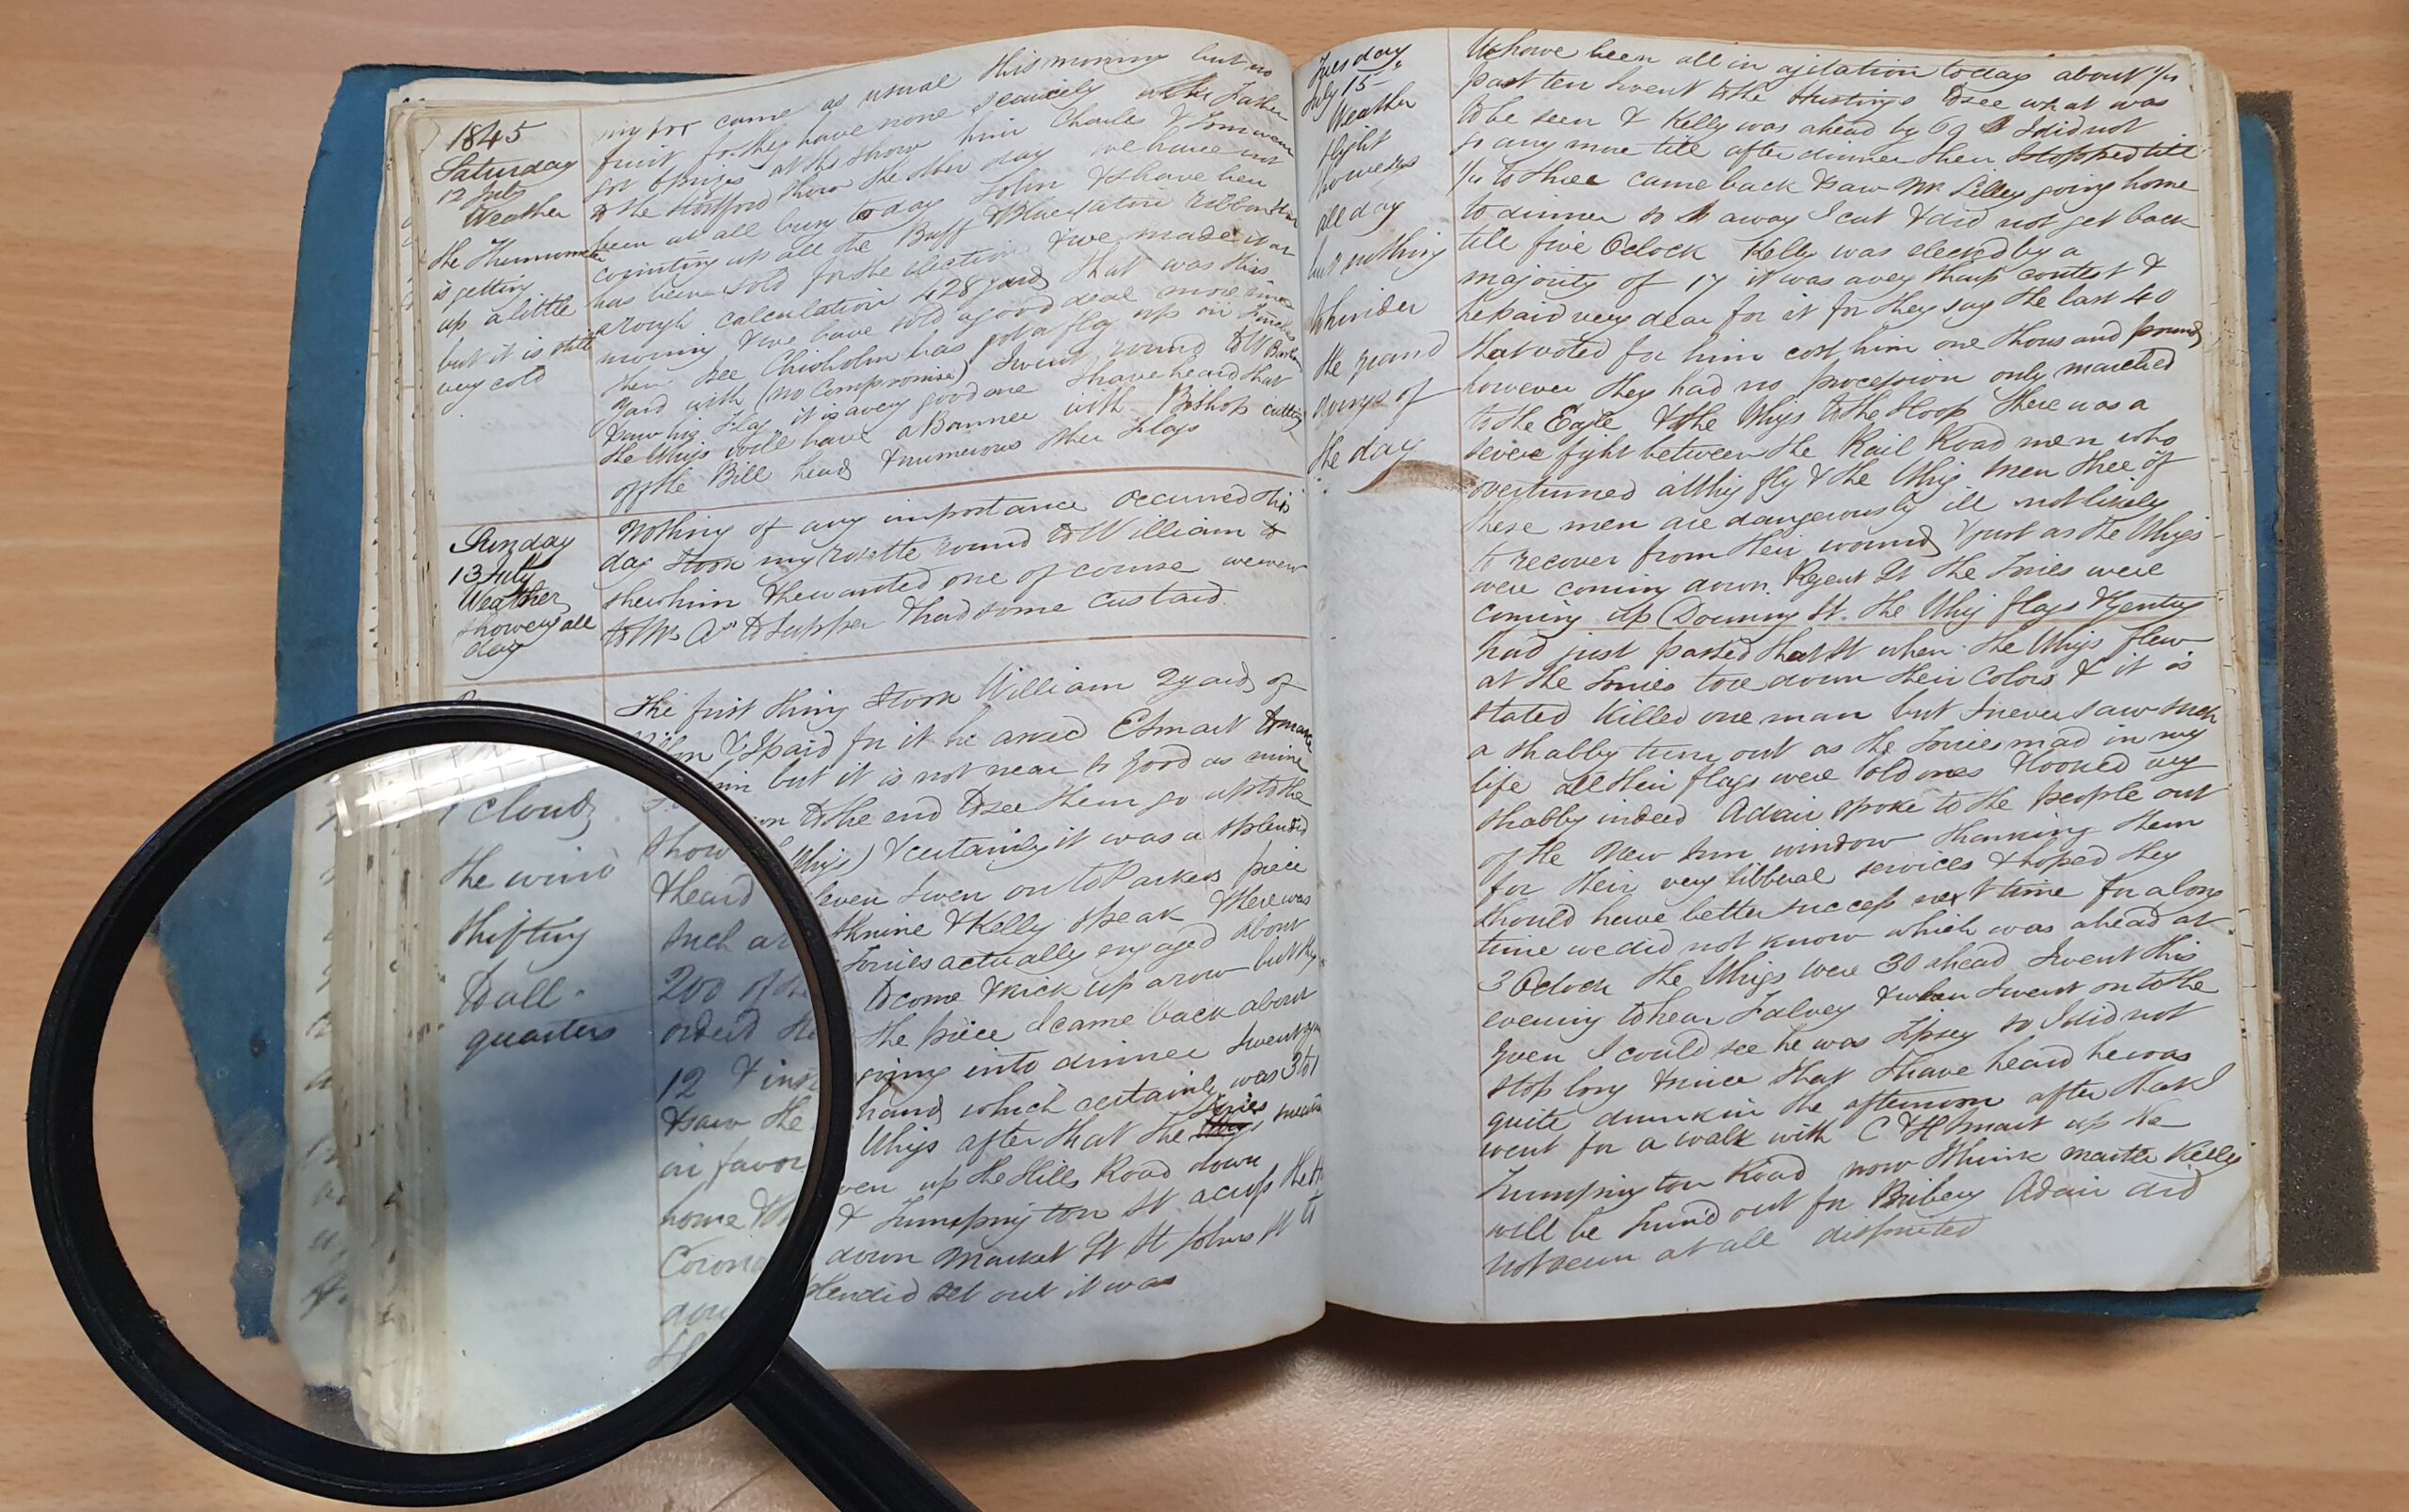 1845
Saturday
12 July
Weather
the Thermometer
is getting
up a little
but it is still
very cold
came as usual this morning but no
fruit for they have none scarcely Father
got 6 prizes at the show him Charles & Tom went
to the Stortford Show the other day we have not
been at all busy today John & I have been
counting up all the Buff & Blue satin ribbon that
has been sold for the election & we made it at
a rough calculation 428 yards that was this
morning & we have sold a good deal more since
then Bee Chisholm has got a flag up in
yard with (no Compromise) I went round to W
& saw his Flag it is a very good one I have heard that
the Whigs will have a Banner with Bishop cutting
off the Bill head & numerous other Flags
Sunday
13 July
Weather
showery all
day
Nothing of any importance occurred this
day I took my rosette round to William to
shew him & he wanted one of course we went
to Mrs to supper & had some custard
cloudy
the wind
shifting
to all
quarters
The first thing I took William 2 yards of
& I paid for it he asked E Smart to make
him but it is not near so good as mine
to the end to see them go up to the
show Whigs) & certainly it was a splendid
& heard even I went on to Parkers piece
such a & Kelly speak & there was
200 of the Tories actually engaged about
to come & kick up a row but they
order the the piece I came back about
12 & going into dinner I went
& saw the hands which certainly was 3 to 1
in favor Whigs after that the Tories
home & up the Hills Road down
& Trumpington St across the
down Market St St Johns St
set out it was
Tuesday
July 15
Weather
slight
showers
all day
but nothing
to hinder
the grand
doings of
the day
We have been all in agitation today about 1/4
past ten I went to the Hustings to see what was
to be seen & Kelly was ahead by 69 I did not
go any more till after dinner then I stopped till
1/4 to three came back & saw Mr Lilley going home
to dinner so away I cut & did not get back
till five Oclock Kelly was elected by a
majority of 17 it was a very sharp contest &
he paid very dear for it for they say the last 40
that voted for him cost him one thousand pounds
however they had no procession only marched
to the Eagle & the Whigs to the Hoop There was a
severe fight between the Rail Road men who
overturned a Whig fly & the Whig men three of
these men are dangerously ill not likely
to recover from their wounds & just as the Whigs
were coming down Regent St the Tories were
coming up Downing St. the Whig flags & Gentry
had just passed that St when the Whigs flew
at the Tories tore down their Colors & it is
stated killed one man but I never saw such
a shabby turn out as the Tories mad in my
life all their flags were old ones & looked very
shabby indeed Adair spoke to the people out
of the New Inn window thanking them
for their very libberal services & hoped they
should have better success next time for a long
time we did not know which was ahead at
3 Oclock the Whigs were 30 ahead I went this
evening to hear Falvey & when I went on to the
I could see he was Tipsey so I did not
stop long & since that I have heard he was
quite drunk in the afternoon after that I
went for a walk with C & H Smart up the
Trumpington Road now I think master Kelly
will be turn'd out for Bribery Adair did
not seem at all dispirited